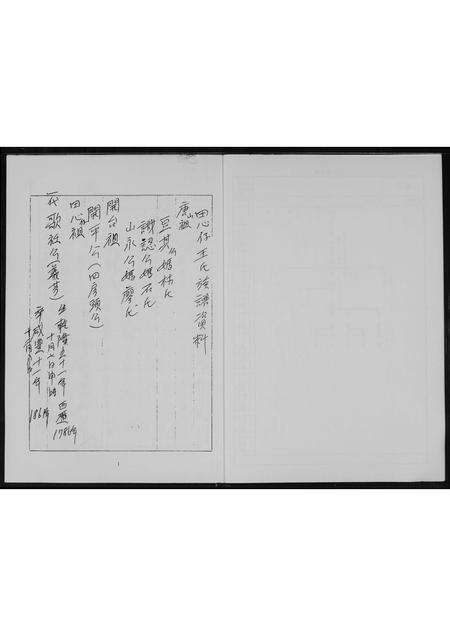 田心仔王氏族譜資料
唐山祖
亘其公媽林氏
謝認公媽石氏
山永公媽廖氏
開台祖
開平公(四房頭公)
田心祖
一代歌社公(篤芳)生乾隆五十一年西歷1786年
十月六日申時
卒咸豐十一年 1861年
1